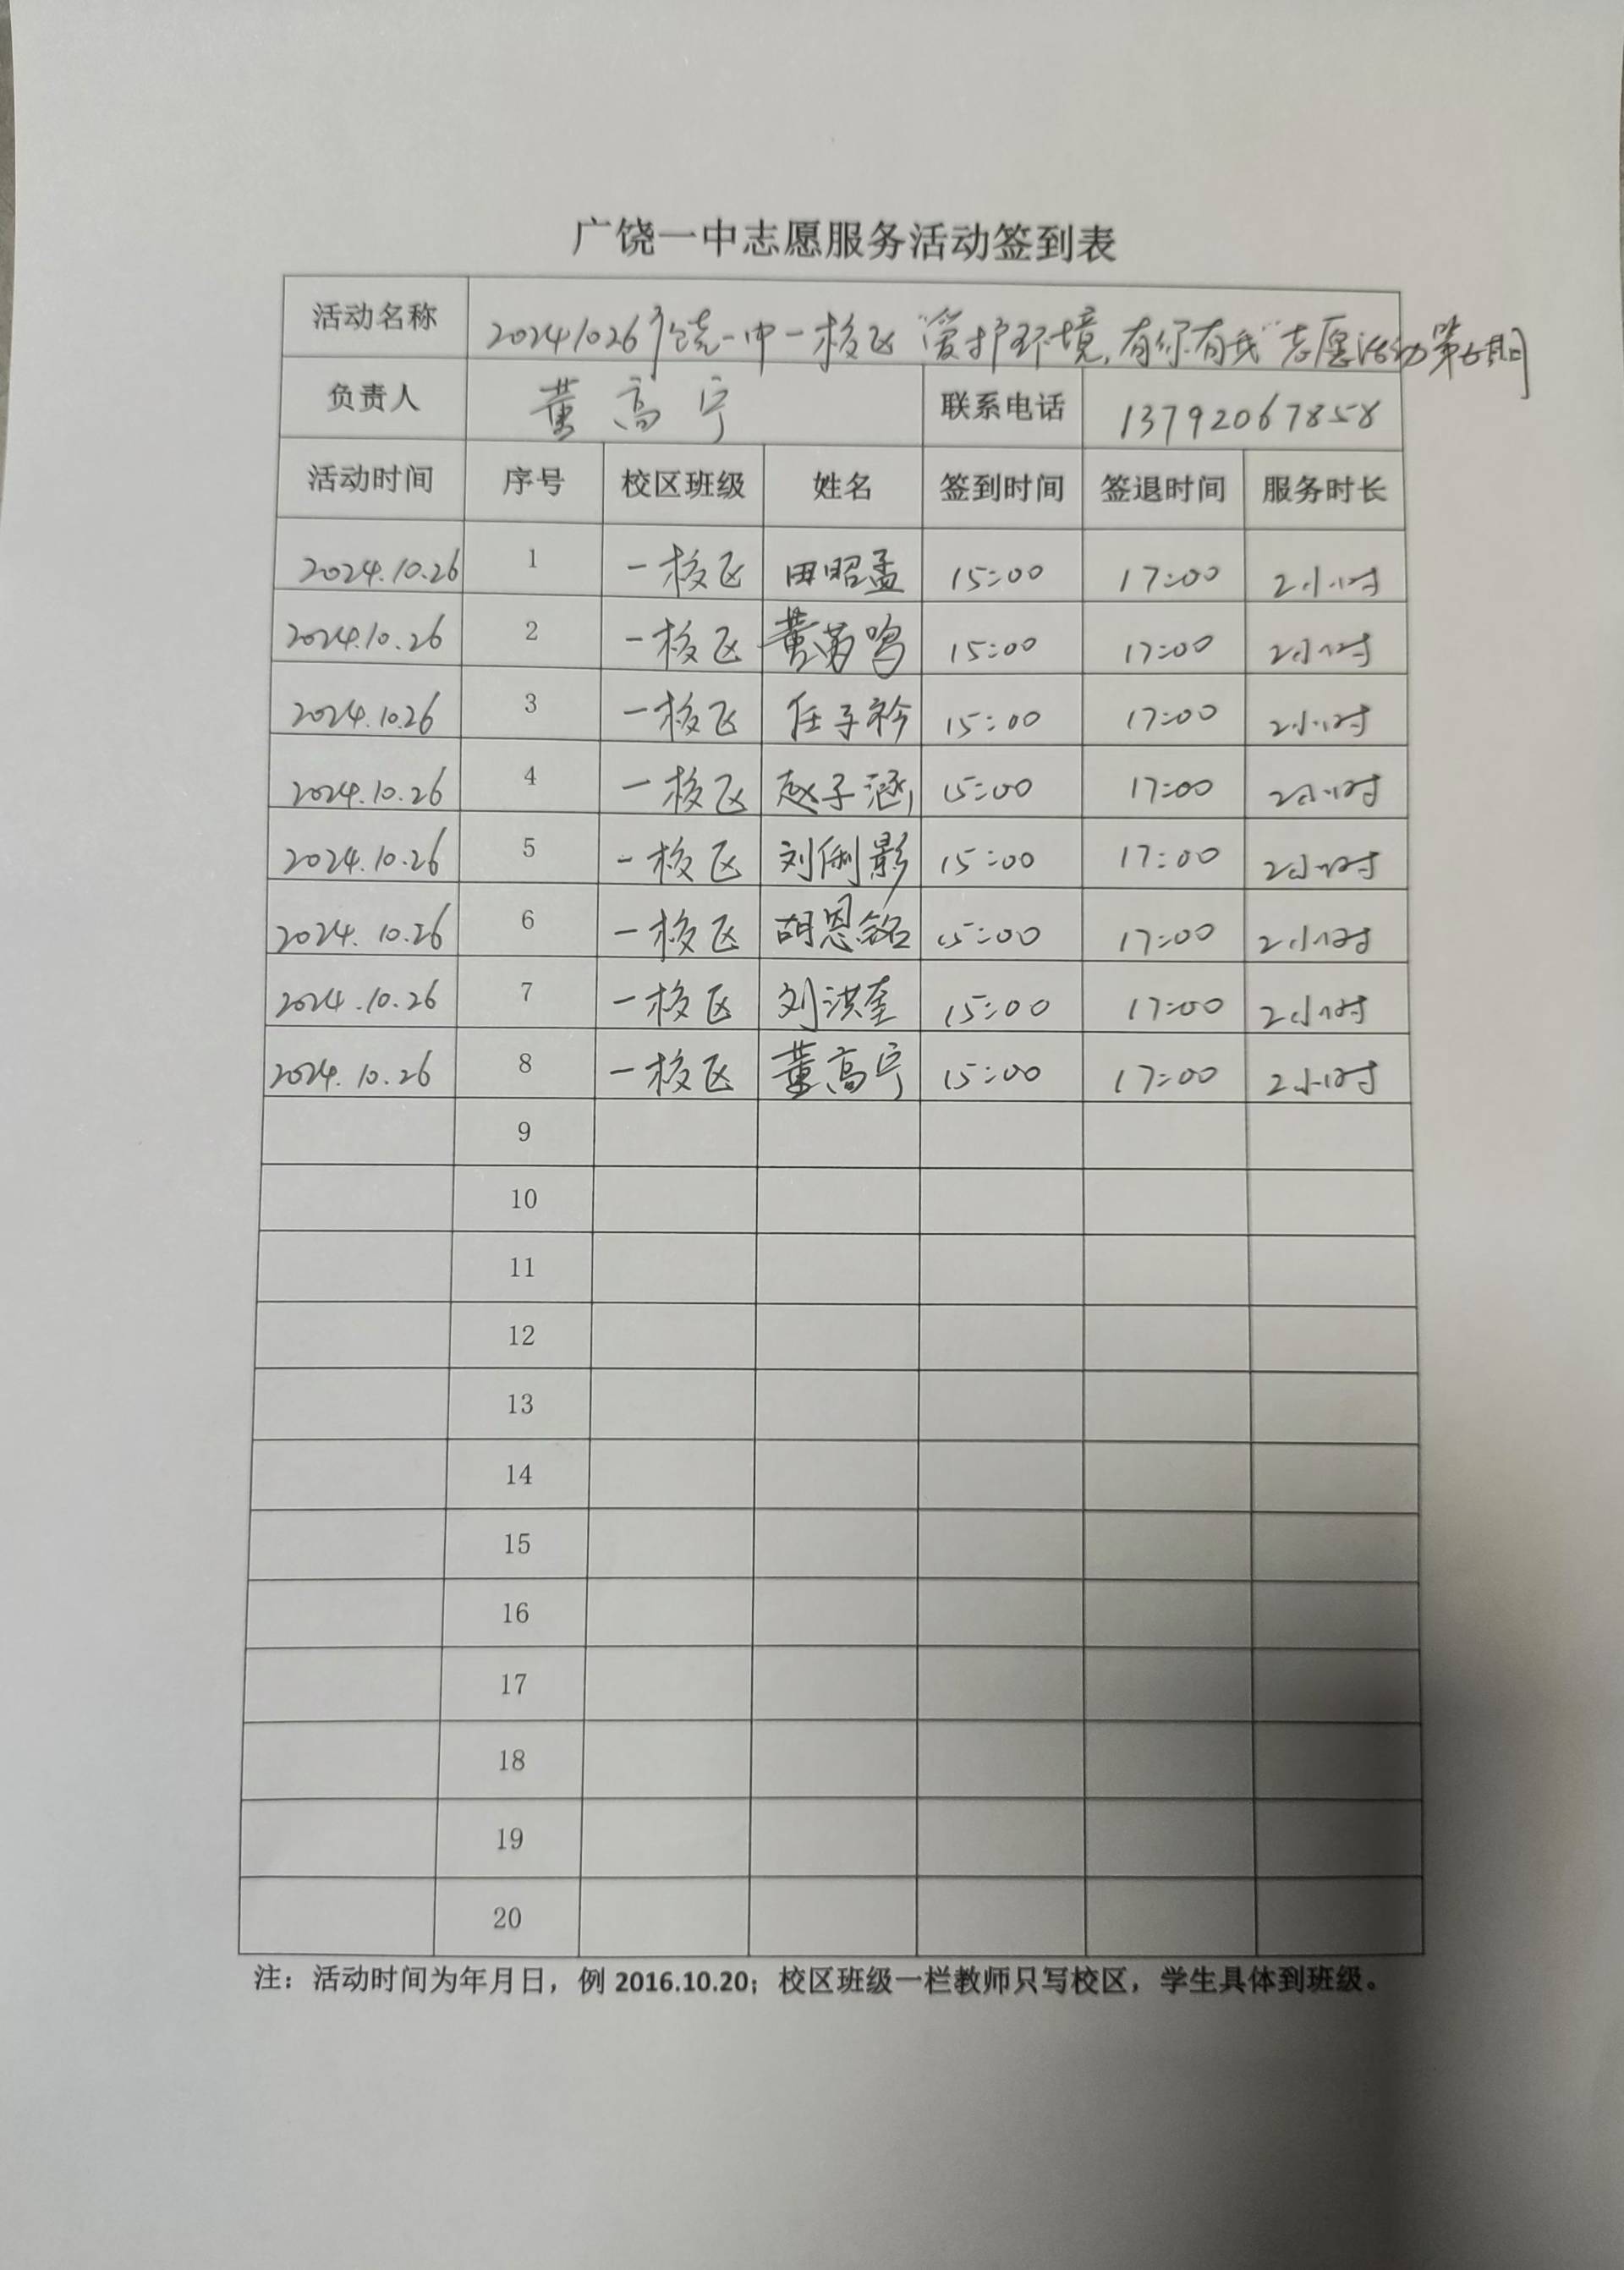 广饶一中志愿服务活动签到表
活动名称 20241026广饶一中一校区“爱护环境,有你有我”志愿活动第五期
负责人 董高宁 联系电话 13792067858
活动时间 序号 校区班级 姓名 签到时间 签退时间 服务时长
2024.10.26 1 一校区 田昭孟 15:00 17:00 2小时
2024.10.26 2 一校区 15:00 17:00 2小时
2024.10.26 3 一校区 任子衿 15:00 17:00 2小时
2024.10.26 4 一校区 赵子涵 15:00 17:00 2小时
2024.10.26 5 一校区 刘俐影 15:00 17:00 2小时
2024.10.26 6 一校区 胡恩铭 15:00 17:00 2小时
2024.10.26 7 一校区 刘洪奎 15:00 17:00 2小时
2024.10.26 8 一校区 董高宁 15:00 17:00 2小时
9
10
11
12
13
14
15
16
17
18
19
20
注：活动时间为年月日，例 2016.10.20；校区班级一栏教师只写校区，学生具体到班级。